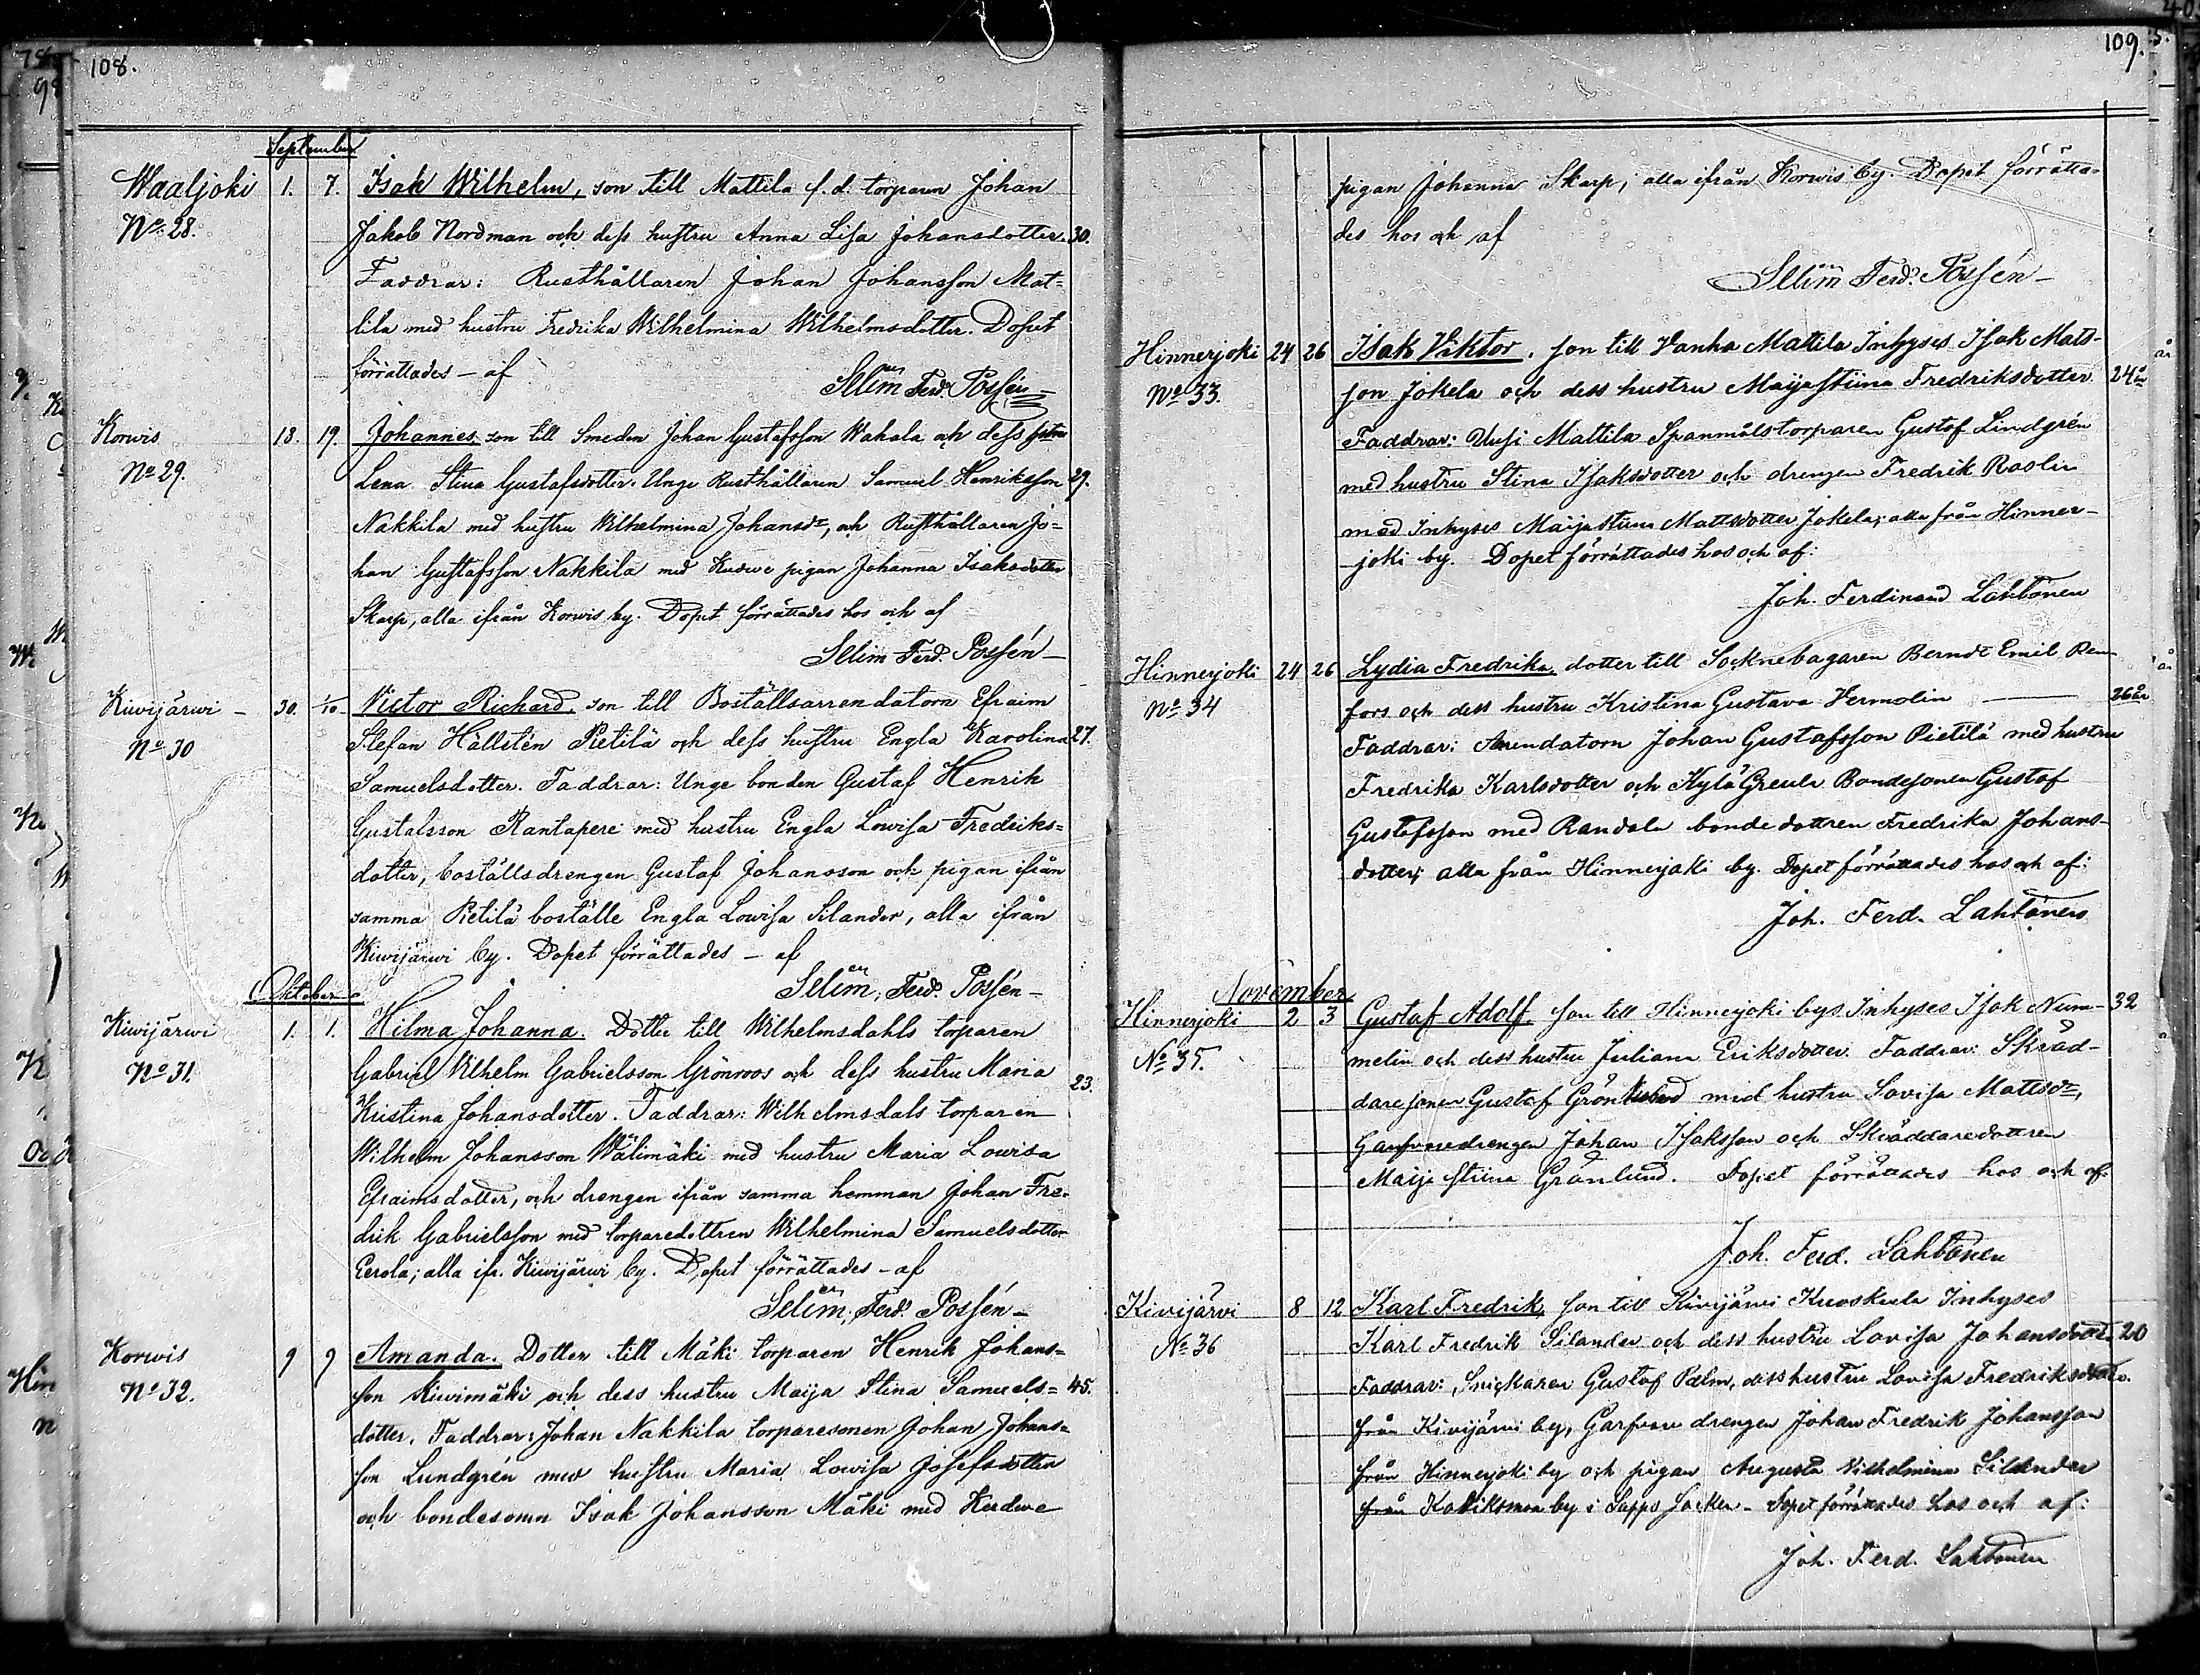 108.
September
Waaljoki 1. 7. Isak Wilhelm, son till Mattila f. d. torparen Johan
No 28. Jakob Nordman och dess hustru Anna Lisa Johansdotter. 30.
Faddrar: Rusthållaren Johan Johansson Mat=
tila med hustru Fredrika Wilhelmina Wilhelmsdotter. Dopet
förrättades – af
Selim Ferd. Possén
Korwis 18. 19. Johannes, son till Smeden Johan Gustafsson Wahala och dess
No 29. Lena Stina Gustafsdotter. Unge Rusthållaren Samuel Henriksson 29.
Nakkila med hustru Wilhelmina Johansdr, och Rusthållaren Jo=
han Gustafsson Nakkila med pigan Johanna Isaksdotter
Skarp, alla ifrån Korwis by. Dopet förrättades hos och af
Selim Ferd. Possén –
Kiwijärwi – 30. 1/10 Victor Richard, son till Boställsarrendatorn Efraim
No 30 Stefan Hällstén Pietilä och dess hustru Engla Karolina 27.
Samuelsdotter. Faddrar: Unge bonden Gustaf Henrik
Gustafsson Rantapere med hustru Engla Lowisa Fredriks=
dotter, boställsdrengen Gustaf Johansson och pigan ifrån
samma Pietilä boställe Engla Lowisa Silander, alla ifrån
Kiwijärwi by. Dopet förrättades – af
Selim, Ferd. Possén –
Oktober
Kiwijärwi 1. 1. Hilma Johanna. Dotter till Wilhelmsdahls torparen
No 31. Gabriel Wilhelm Gabrielsson Grönroos och dess hustru Maria 23.
Kristina Johansdotter. Faddrar: Wilhelmsdals torparen
Wilhelm Johansson Wälimäki med hustru Maria Lowisa
Efraimsdotter, och drengen ifrån samma hemman Johan Fre=
drik Gabrielsson med torparedottren Wilhelmina Samuelsdotter
Eerola; alla ifr. Kiwijärwi by. Dopet förrättades – af
Selim, Ferd. Possén –
Korwis 9 9 Amanda. Dotter till Mäki torparen Henrik Johans=
No 32. son Kiwimäki och dess hustru Maija Stina Samuels= 45.
dotter. Faddrar: Johan Nakkila torparesonen Johan Johans=
son Lundgrén med hustru Maria Lowisa Josefsdotter
och bondesonen Isak Johansson Mäki med
109.
pigan Johanna Skarp; alla ifrån Korwis by. Dopet förrätta=
des hos och af
Selim Ferd. Possén –
Hinnerjoki 24 26 Isak Viktor, son till Vanha Mattila Inhyses Isak Mats-
No 33. son Jokela och dess hustru Maija Stiina Fredriksdotter 24 år
Faddrar: Uusi Mattila Spanmålstorparen Gustof Lindgrén
med hustru Stina Isaksdotter och drengen Fredrik Roslin
med Inhyses Maija Stiina Mattsdotter Jokela; alla från Hinner-
joki by. Dopet förrättades hos och af:
Joh. Ferdinand Lahtonen
Hinnerjoki 24 26 Lydia Fredrika, dotter till Socknebagaren Berndt Emil Ren-
No 34 fors och dess hustru Kristina Gustava Vermolin 26 år
Faddrar: Arrendatorn Johan Gustafsson Pietilä med hustru
Fredrika Karlsdotter och Kylä Greula Bondesonen Gustaf
Gustafsson med Randala bondedottren Fredrika Johans-
dotter; alla från Hinnerjoki by. Dopet förrättades hos och af:
Joh. Ferd. Lahtonen
November
Hinnerjoki 2 3 Gustaf Adolf, son till Hinnerjoki bys Inhyses Isak Num- 32
No 35. melin och dess hustru Juliana Eriksdotter. Faddrar: Skräd-
daresonen Gustaf Grönlund med hustru Lovisa Mattsdr,
Garfvaredrengen Johan Isaksson och Skräddaredottren
Maija Stiina Grönlund. Dopet förrättades hos och af
Joh. Ferd. Lahtonen
Kivijärvi 8 12 Karl Fredrik, son till Kivijärvi Kuoskula Inhyses
No 36 Karl Fredrik Silander och dess hustru Lovisa Johansdotr 20
Faddrar: Snickaren Gustaf Palm, dess hustru Lovisa Fredriksdotr.
från Kivijärvi by, Garfvare drengen Johan Fredrik Johansson
från Hinnerjoki by och pigan Augusta Vilhelmina Silander
från by i Lappo Socken. Dopet förrättades hos och af:
Joh. Ferd. Lahtonen